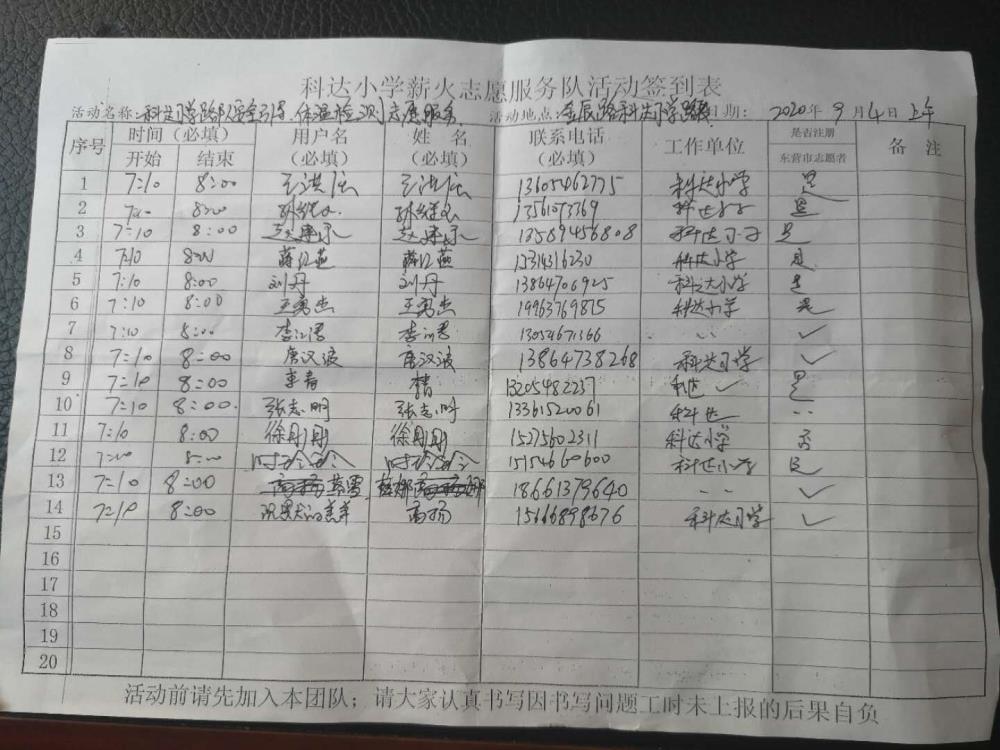 科达小学薪火志愿服务队活动签到表
活动名称:科达小学路队安全引导、体温检测志愿服务 活动地点:金辰路科达小学 日期: 2020年9月4日上午
序号 时间(必填) 用户名 姓 名 联系电话 工作单位 是否注册 备 注
开始 结束 (必填) (必填) (必填) 东营市志愿者
1 7:10 8:00 13605462775 科达小学 是
2 8:00 13561073769 是
3 7:10 8:00 13589456808 科达小学 是
4 7:10 8:00 蒋红燕 蒋红燕 15314316230 科达小学 是
5 7:10 8:00 刘丹 刘丹 13864706925 科达小学 是
6 7:10 8:00 王勇杰 王勇杰 19963769875 科达小学 是
7 7:10 8:00 13054671366 ✓
8 7:10 8:00 唐汉波 唐汉波 13864738268 科达小学 ✓
9 7:10 8:00 13205482237 科达 ✓ 是
10 7:10 8:00. 张志明 张志明 13361520061 科达
11 7:10 8:00 徐彤彤 徐彤彤 15275602311 科达小学 否
12 8:00 15154660600 科达小学 是
13 7:10 8:00 18661379640 ✓
14 7:10 8:00 高扬 15666898676 科达小学 ✓
15
16
17
18
19
20
活动前请先加入本团队;请大家认真书写因书写问题工时未上报的后果自负